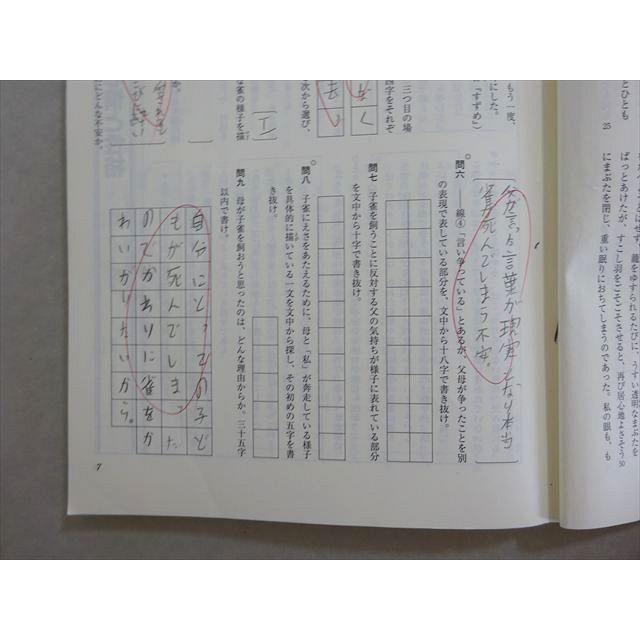 とひとも
25
籠をゆすられるたびに、うすい透明なまぶたを
ぱっとあけたが、すこし羽をごそごそさせると、再び居心地よさそう
50
にまぶたを閉じ、重い眠りにおちてしまうのであった。私の眼も、も
もう一度、
にした。
『すずめ』
三つ目の場
四字をそれぞ
次から選び、
な雀の様子を描
にどんな不安か。
父が言った言葉が現実となり本当
雀が死んでしまう不安。
問六 ――線④「言い争っている」とあるが、父母が争ったことを別
の表現で表している部分を、文中から十八字で書き抜け。
問七 子雀を飼うことに反対する父の気持ちが様子に表れている部分
を文中から十字で書き抜け。
問八 子雀にえさをあたえるために、母と「私」が奔走している様子
を具体的に描いている一文を文中から探し、その初めの五字を書
き抜け。
問九 母が子雀を飼おうと思ったのは、どんな理由からか。三十五字
以内で書け。
自分にとっての子ど
もが死んでしまった
のでかわりに雀をか
わいがりたいから。
7